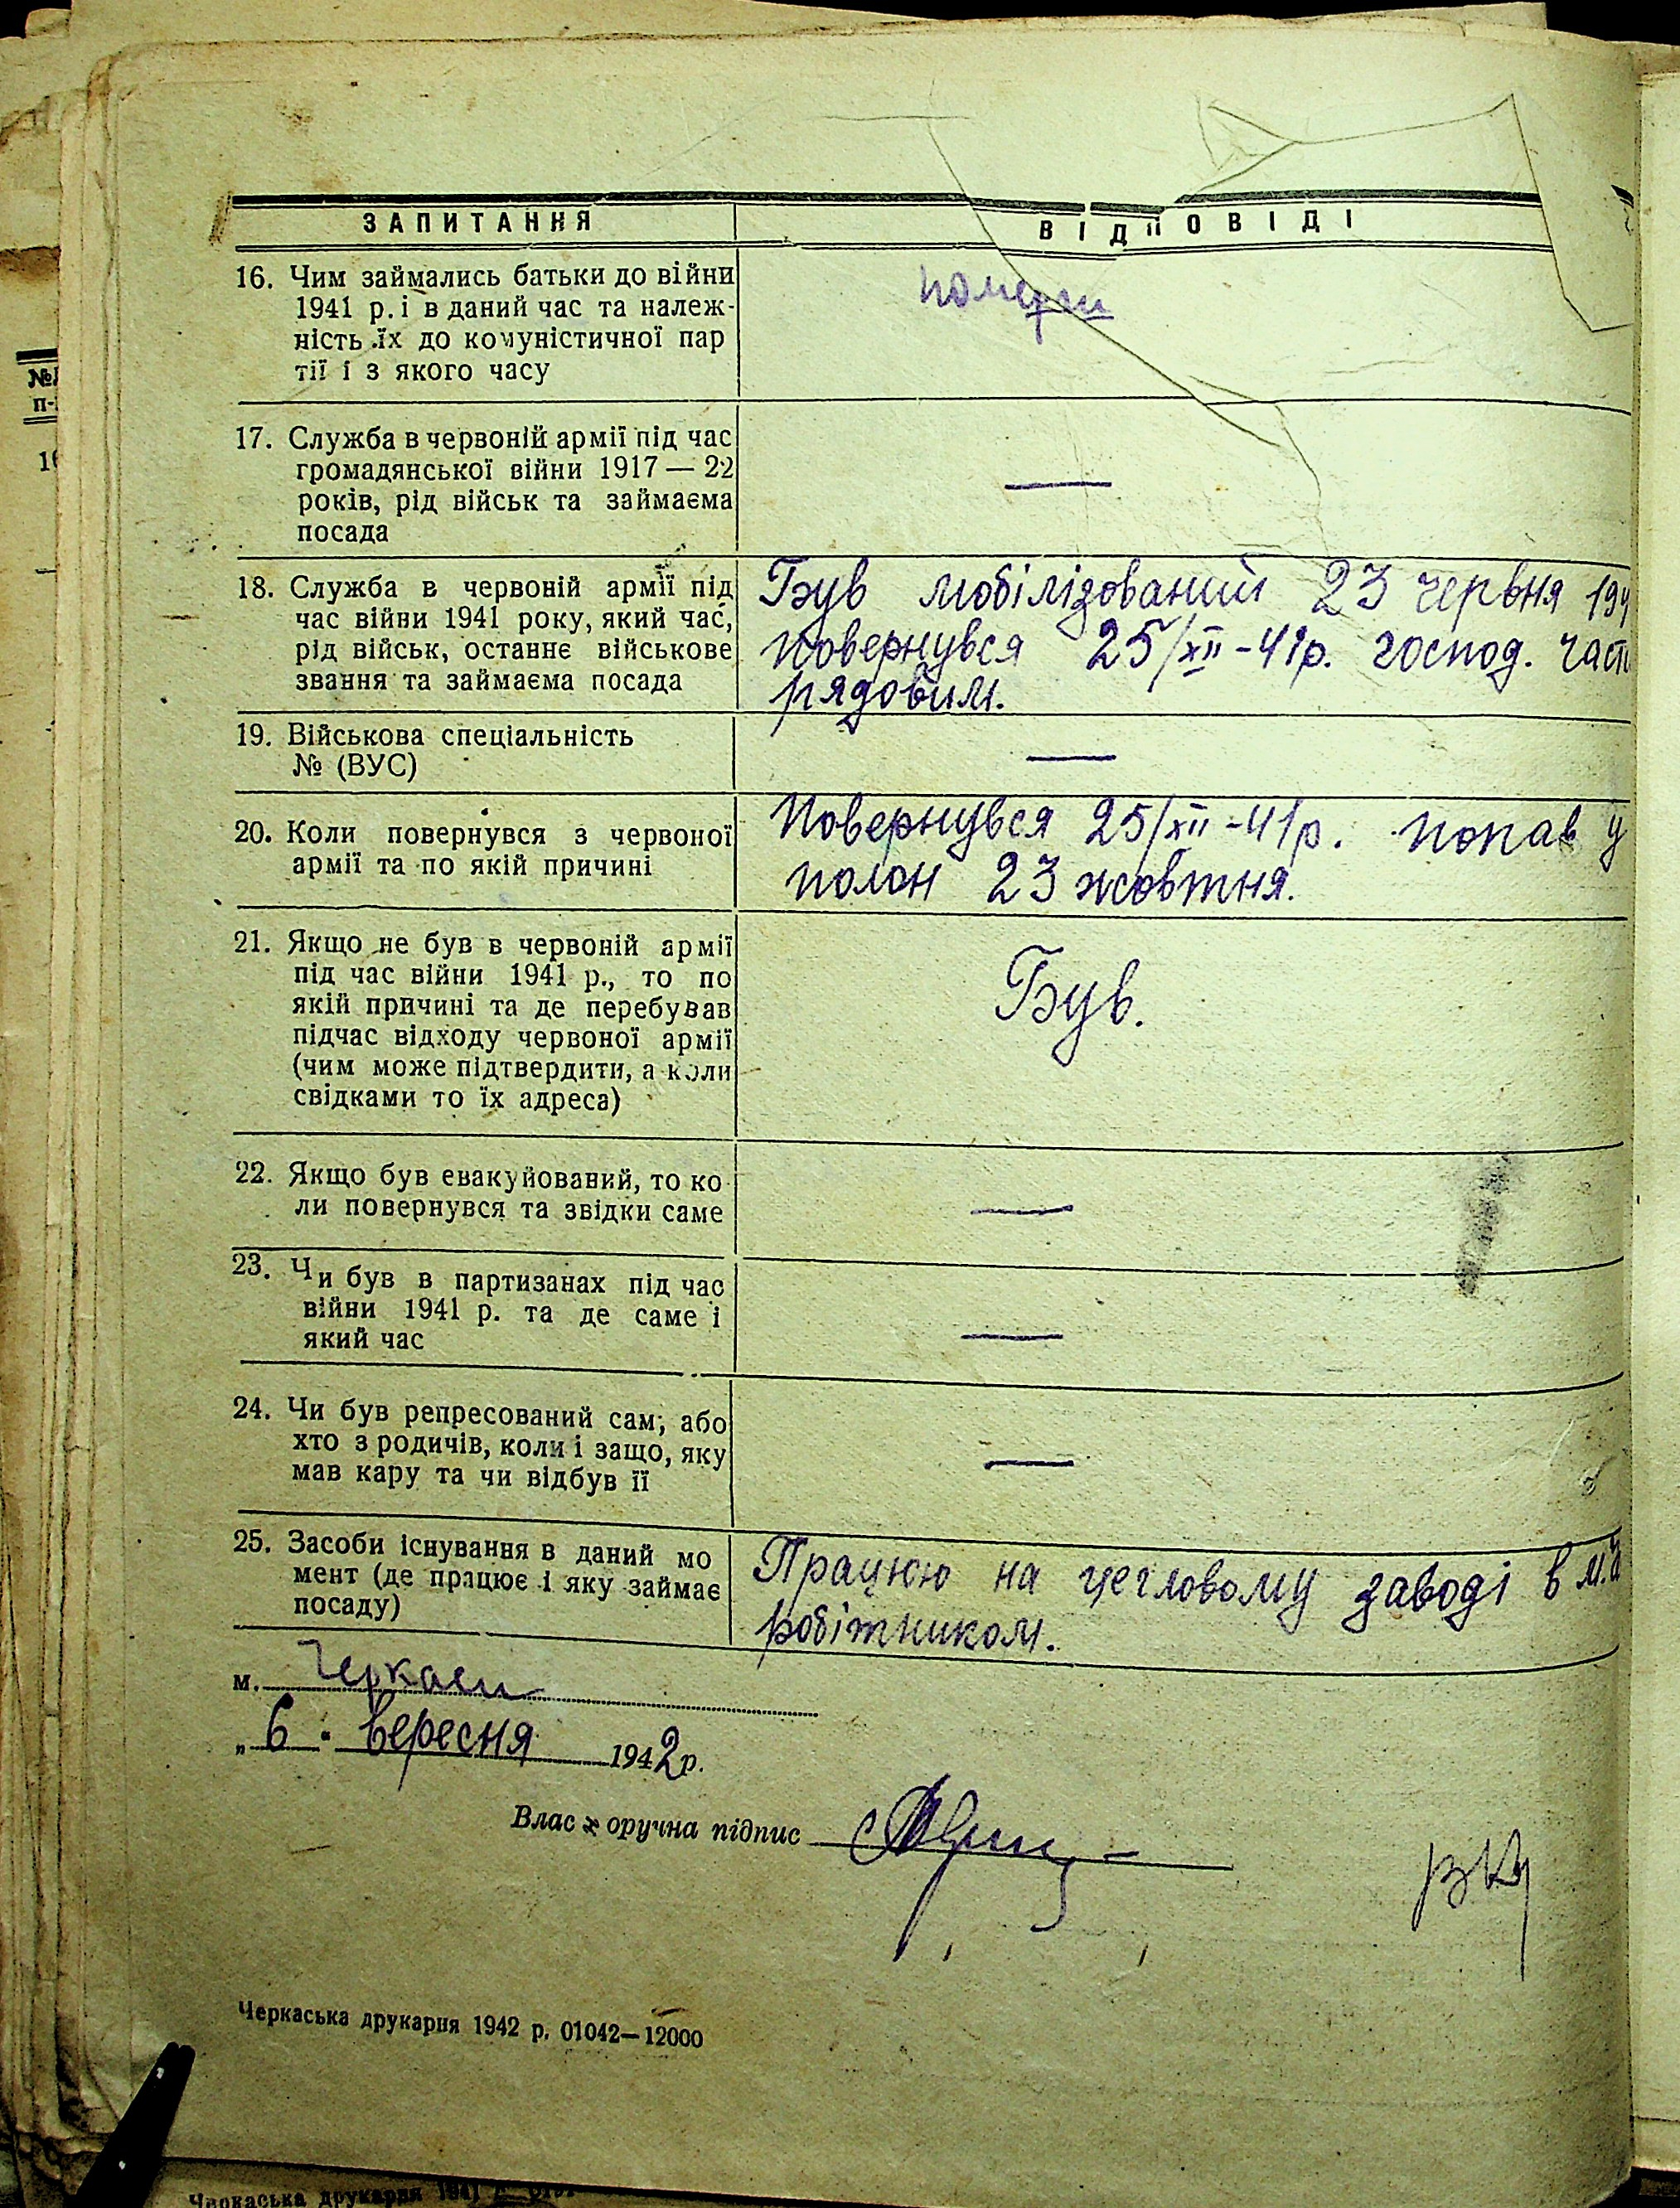 ЗАПИТАННЯ
ВІДПОВІДІ
16. Чим займались батьки до війни
1941 р. і в даний час та належ-
ність їх до комуністичної пар
тії і з якого часу
померли
17. Служба в червоній армії під час
громадянської війни 1917 — 22
років, рід військ та займаєма
посада
—
18. Служба в червоній армії під
час війни 1941 року, який час,
рід військ, останнє військове
звання та займаєма посада
Був мобілізований 23 червня 194
повернувся 25/XII-41р. господ. част
рядовим.
19. Військова спеціальність
№ (ВУС)
—
20. Коли повернувся з червоної
армії та по якій причині
Повернувся 25/XII-41р. попав у
полон 23 жовтня.
21. Якщо не був в червоній армії
під час війни 1941 р., то по
якій причині та де перебував
підчас відходу червоної армії
(чим може підтвердити, а коли
свідками то їх адреса)
Був.
22. Якщо був евакуйований, то ко
ли повернувся та звідки саме
—
23. Чи був в партизанах під час
війни 1941 р. та де саме і
який час
—
24. Чи був репресований сам, або
хто з родичів, коли і защо, яку
мав кару та чи відбув її
—
25. Засоби існування в даний мо
мент (де працює і яку займає
посаду)
Працюю на цегловому заводі в м.
робітником.
м. Черкаси
„ 6 " вересня 1942 р.
Влас оручна підпис
Черкаська друкарня 1942 р. 01042—12000
№
п-
1
Черкаська друкарня 1941